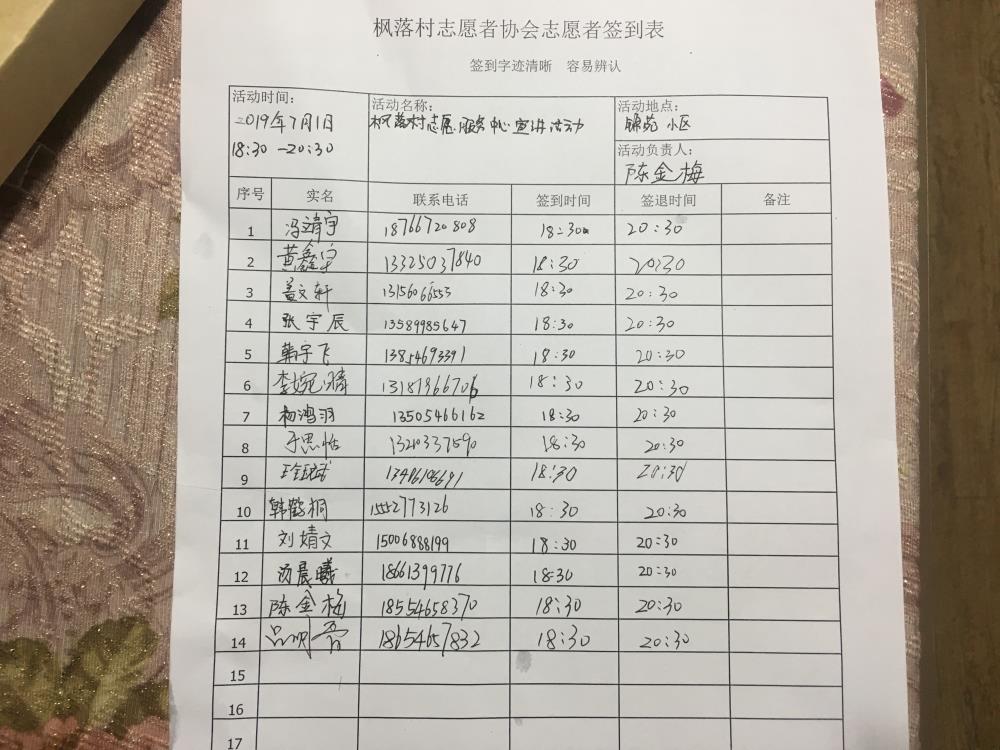 枫落村志愿者协会志愿者签到表
签到字迹清晰 容易辨认
活动时间: 活动名称: 活动地点:
2019年7月1日 枫落村志愿服务中心宣讲活动 锦苑小区
18:30-20:30 活动负责人:
陈金梅
序号 实名 联系电话 签到时间 签退时间 备注
1 冯靖宇 18766720808 18:30 20:30
2 黄鑫宇 13325037840 18:30 20:30
3 盖文轩 13156066553 18:30 20:30
4 张宇辰 13589985647 18:30 20:30
5 韩宇飞 13854693391 18:30 20:30
6 李婉晴 13181966706 18:30 20:30
7 杨鸿羽 13505466162 18:30 20:30
8 于思恬 13210337590 18:30 20:30
9 18:30 20:30
10 韩鹤桐 15552773126 18:30 20:30
11 刘婧文 15006888199 18:30 20:30
12 晨曦 18661399776 18:30 20:30
13 陈金梅 18554658370 18:30 20:30
14 吕明霄 18654657832 18:30 20:30
15
16
17